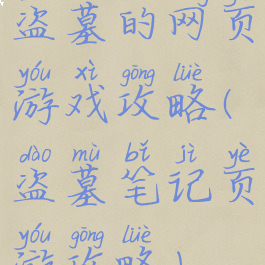 盗墓的网页
yóu xì gōng lüè
游戏攻略(
dào mù bǐ jì yè
盗墓笔记页
yóu gōng lüè
游攻略)